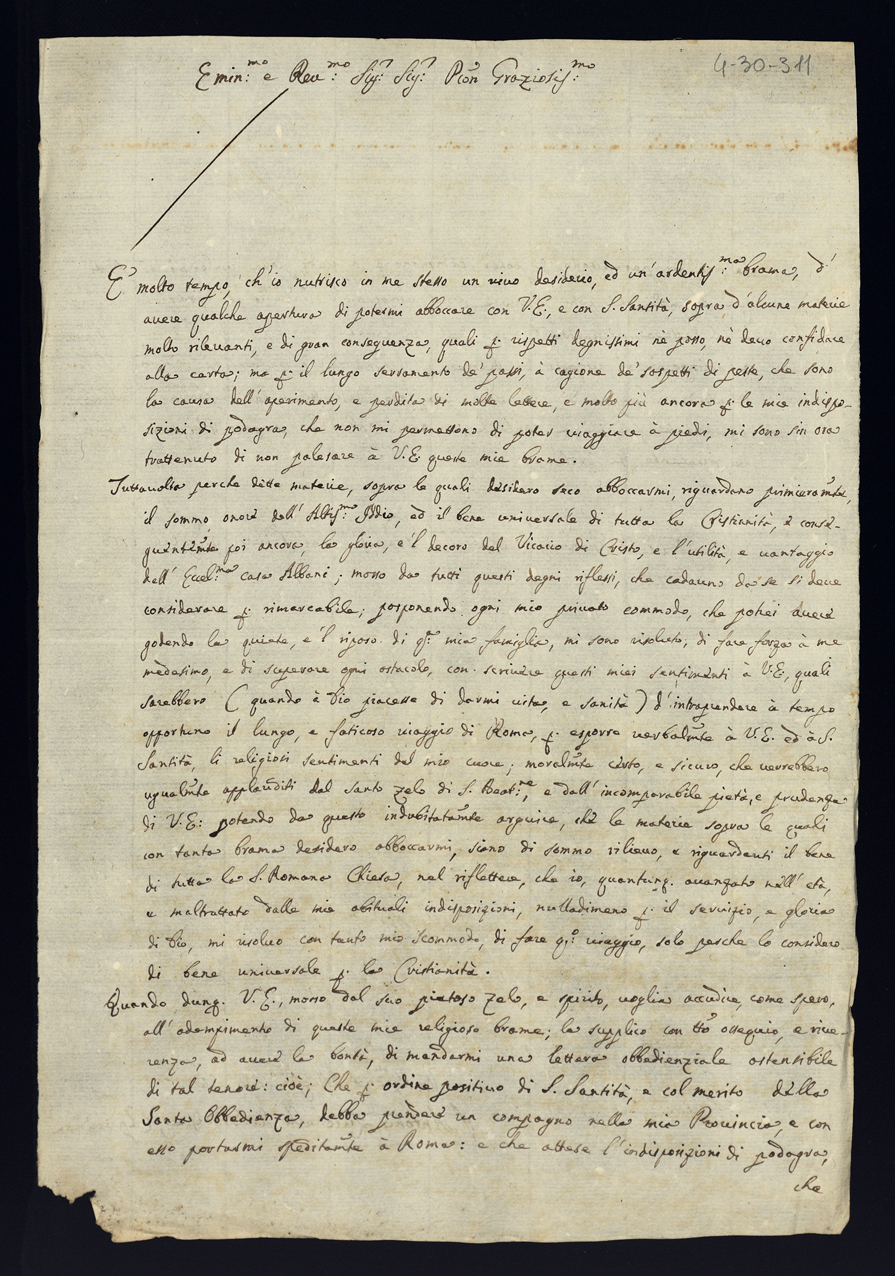 4-30-311
Emin:mo e Reu:mo Sig:r Sig:r Pron Graziosis:mo
E' molto tempo, ch'io nutrisco in me stesso un viuo desiderio, ed un'ardentis:ma brama, d'
auere qualche apertura di potermi abboccare con V.E., e con S. Santità, sopra d'alcune materie
molto rileuanti, e di gran conseguenza, quali p. rispetti degnissimi nè posso, nè deuo confidare
alla carta; ma p. il lungo serramento de' passi, à cagione de' sospetti di peste, che sono
la causa dell'aperimento, e perdita di molte lettere, e molto più ancora p. le mie indispo-
sizioni di podagra, che non mi permettono di poter uiaggiare à piedi, mi sono sin ora
trattenuto di non palesare à V.E. queste mie brame.
Tuttauolta perche dette materie, sopra le quali desidero seco abboccarmi, riguardano primieramte,
il sommo onore dell'Altis:mo Iddio, ed il bene uniuersale di tutta la Cristianità, e conse-
guentemte poi ancora, la gloria, e'l decoro del Vicario di Cristo, e l'utilità, e uantaggio
dell'Eccel:ma casa Albani; mosso da tutti questi degni riflessi, che cadauno da se si deue
considerare p. rimarcabile; posponendo ogni mio priuato commodo, che potrei auere
godendo la quiete, e'l riposo di qta mia famiglia, mi sono risoluto, di fare forza à me
medesimo, e di superare ogni ostacolo, con scriuere questi miei sentimenti à V.E., quali
sarebbero ( quando à Dio piacesse di darmi uita, e sanità ) d'intraprendere à tempo
opportuno il lungo, e faticoso uiaggio di Roma, p. esporre uerbalmte à V.E. ed à S.
Santità, li religiosi sentimenti del mio cuore; moralmte certo, e sicuro, che uerrebbero
ugualmte applauditi dal santo zelo di S. Beat:ne, e dall'incomparabile pietà, e prudenza
di V.E: potendo da questo indubitatamte arguire, che le materie sopra le quali
con tanta brama desidero abboccarmi, siano di sommo rilieuo, e riguardanti il bene
di tutta la S. Romana Chiesa, nel riflettere, che io, quantunq. auanzato nell'età,
e maltrattato dalle mie abituali indisposizioni, nulladimeno p. il seruizio, e gloria
di Dio, mi risoluo con tanto mio scommodo, di fare qto uiaggio, solo perche lo considero
di bene uniuersale p. la Cristianità.
Quando dunq. V.E., mosso dal suo pietoso zelo, e spirito, uoglia accudire, come spero,
all'adempimento di queste mie religiose brame; la supplico con tto ossequio, e riue-
renza, ad auere la bontà, di mandarmi una lettera obbedienziale ostensibile
di tal tenore: cioè; Che p. ordine positiuo di S. Santità, e col merito della
Santa Obbedienza, debba prendere un compagno nella mia Prouincia, e con
esso portarmi speditamte à Roma: e che attese l'indisposizioni di podagra,
che